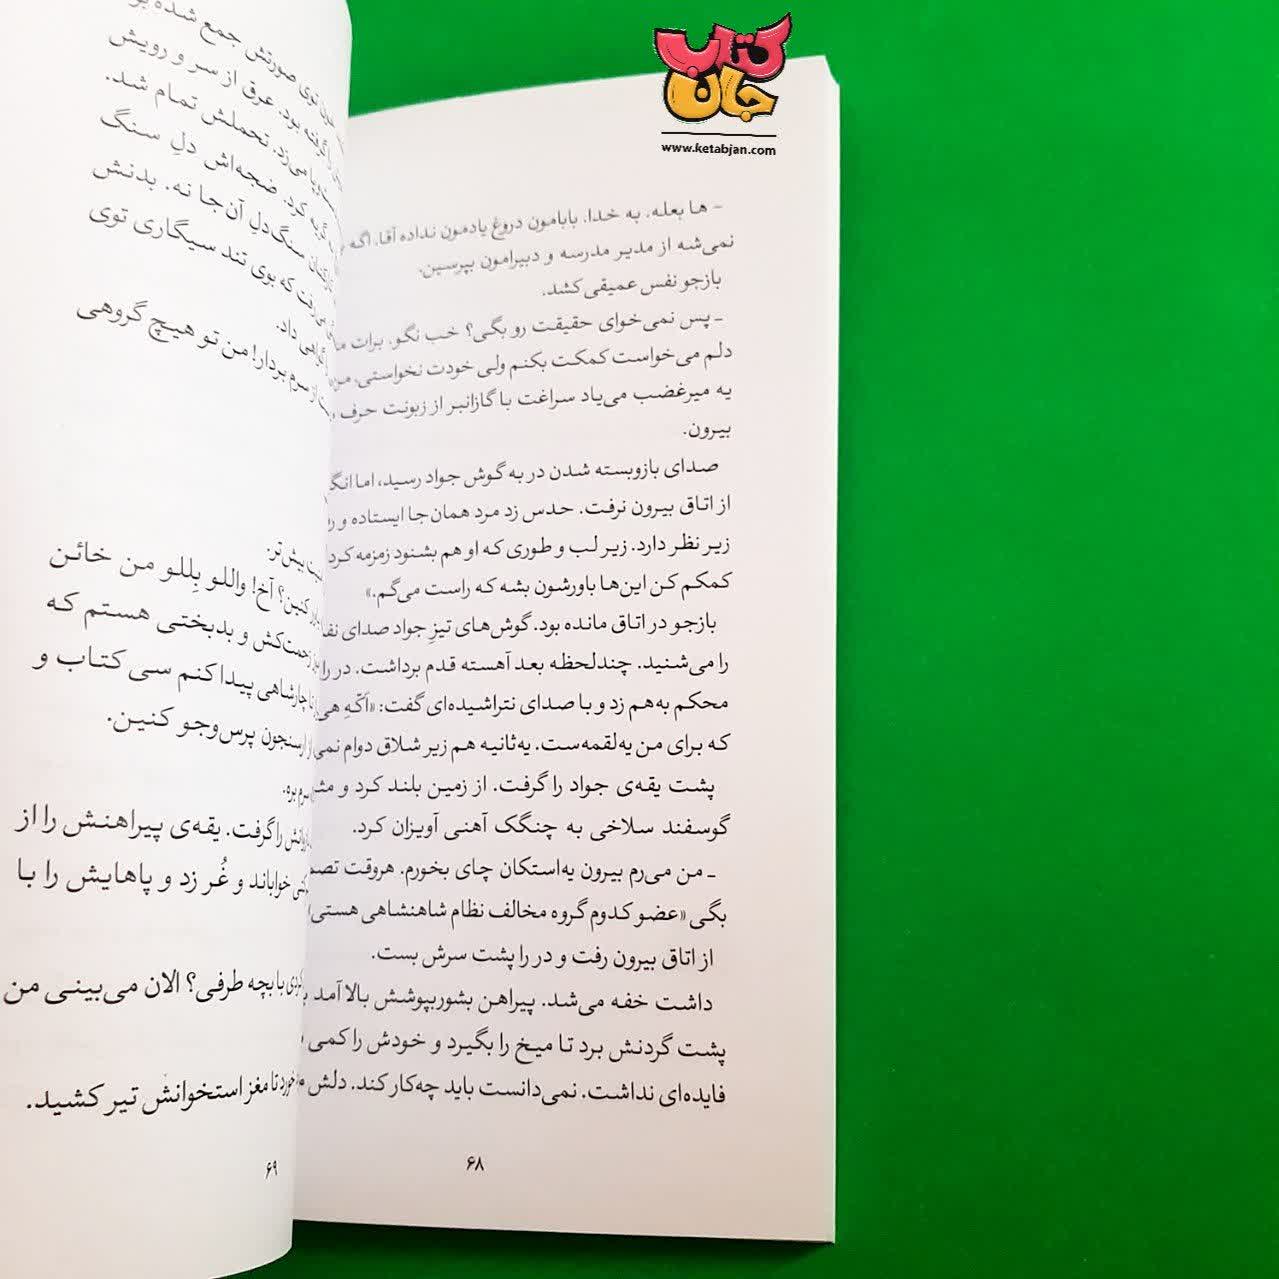 کتاب
جان
www.ketabjan.com
- ها بعله. به خدا. بابامون دروغ یادمون نداده آقا. اگه
نمی‌شه از مدیر مدرسه و دبیرامون بپرسین.
بازجو نفس عمیقی کشد.
- پس نمی‌خوای حقیقت رو بگی؟ خب نگو. برات
دلم می‌خواست کمکت بکنم ولی خودت نخواستی. من
یه میرغضب می‌یاد سراغت با گازانبر از زبونت حرف
بیرون.
صدای بازوبسته شدن در به گوش جواد رسید، اما
از اتاق بیرون نرفت. حدس زد مرد همان‌جا ایستاده و
زیر نظر دارد. زیر لب و طوری که او هم بشنود زمزمه کرد
کمکم کن این‌ها باورشون بشه که راست می‌گم.»
بازجو در اتاق مانده بود. گوش‌های تیزِ جواد صدای
را می‌شنید. چندلحظه بعد آهسته قدم برداشت. در را
محکم به‌هم زد و با صدای نتراشیده‌ای گفت: «اَکّهِ هی
که برای من یه‌لقمه‌ست. یه‌ثانیه هم زیر شلاق دوام
پشت یقه‌ی جواد را گرفت. از زمین بلند کرد و
گوسفند سلاخی به چنگک آهنی آویزان کرد.
- من می‌رم بیرون یه‌استکان چای بخورم. هروقت
بگی «عضو کدوم گروه مخالف نظام شاهنشاهی هستی
از اتاق بیرون رفت و در را پشت سرش بست.
داشت خفه می‌شد. پیراهن بشوربپوشش بالا آمد
پشت گردنش برد تا میخ را بگیرد و خودش را کمی
فایده‌ای نداشت. نمی‌دانست باید چه‌کار کند. دلش
۶۸
توی صورتش جمع شده
را گرفته بود. عرق از سر و رویش
می‌زد. تحملش تمام شد.
گریه کرد. ضجه‌اش دلِ سنگ
سنگ‌دلِ آن‌جا نه. بدنش
می‌رفت که بوی تند سیگاری توی
داد.
از سرم بردار! من تو هیچ گروهی
بیش‌تر.
کنین؟ آخ! واللو بِللو من خائن
زحمت‌کش و بدبختی هستم که
تا چارشاهی پیدا کنم سی کتاب و
ارسنجون پرس‌وجو کنین.
بره.
را گرفت. یقه‌ی پیراهنش را از
خواباند و غُر زد و پاهایش را با
با بچه طرفی؟ الان می‌بینی من
تا مغز استخوانش تیر کشید.
۶۹